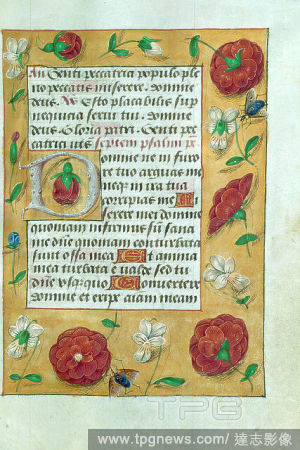 Genti peccatrici populo ple
no peccatis miserere domine
deus. Esto placabilis sup
nequicia servi tui. domine
deus. Gloria patri. Genti pec
catrici septem psalmi
Domine ne in furo
re tuo arguas
neq in ira tua
corripias me Mi
serere mei domine
quoniam infirmus sum sana
me dñe quoniam conturbata
sunt ossa mea Et anima
mea turbata e valde sed tu
dñe usquequo Convertere
domine et eripe aiam meam
TPG
www.tpgnews.com/達志影像